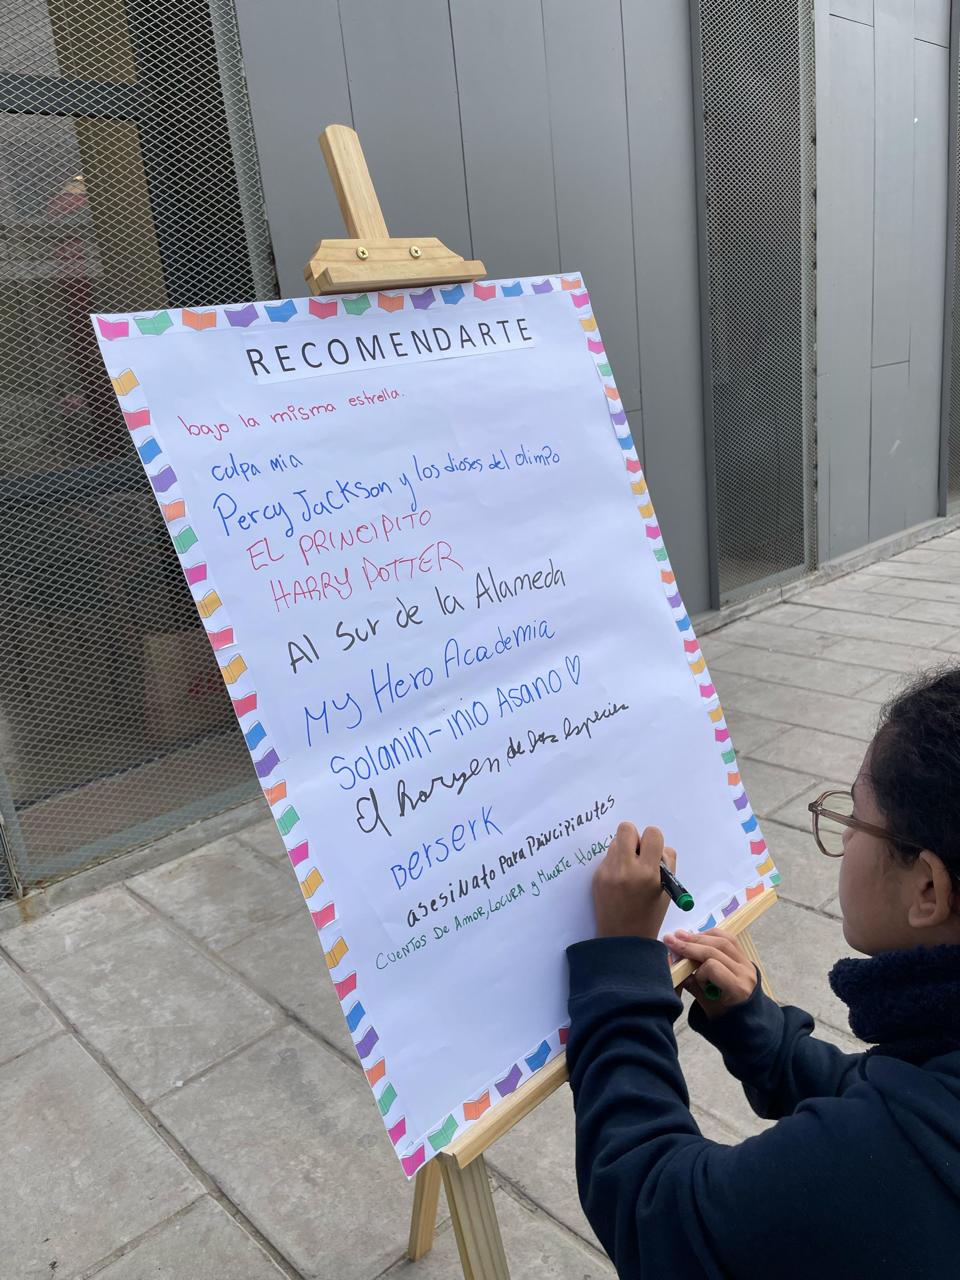 RECOMENDARTE
bajo la misma estrella.
culpa mia
Percy Jackson y los dioses del olimpo
EL PRINCIPITO
HARRY POTTER
Al Sur de la Alameda
MY Hero Academia
Solanin-inio Asano ♡
El horygen de las especies
Berserk
asesiNato Para Principiantes
CUENTOS De AMOR, LOCURA y MUERTE HORAC